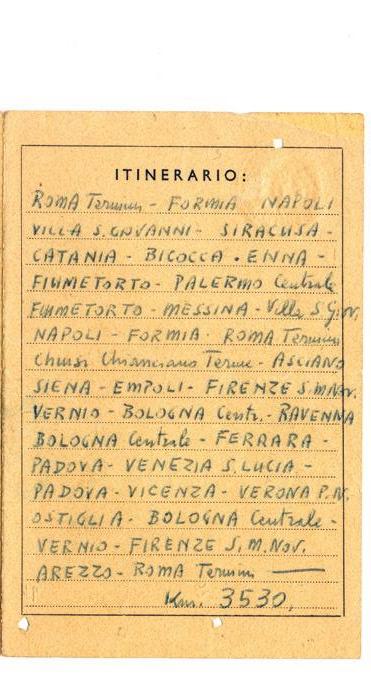 ITINERARIO:
ROMA Termini - FORMIA NAPOLI
VILLA S. GIOVANNI - SIRACUSA -
CATANIA - BICOCCA - ENNA -
FIUMETORTO - PALERMO Centrale
FIUMETORTO - MESSINA - Villa S.G.N.
NAPOLI - FORMIA - ROMA Termini
Chiusi Chianciano Terme - ASCIANO
SIENA - EMPOLI - FIRENZE S.M.Nov.
VERNIO - BOLOGNA Centr. - RAVENNA
BOLOGNA Centrale - FERRARA -
PADOVA - VENEZIA S. LUCIA -
PADOVA - VICENZA - VERONA P.N.
OSTIGLIA - BOLOGNA Centrale -
VERNIO - FIRENZE S. M. Nov.
AREZZO - ROMA Termini —
Km. 3530,